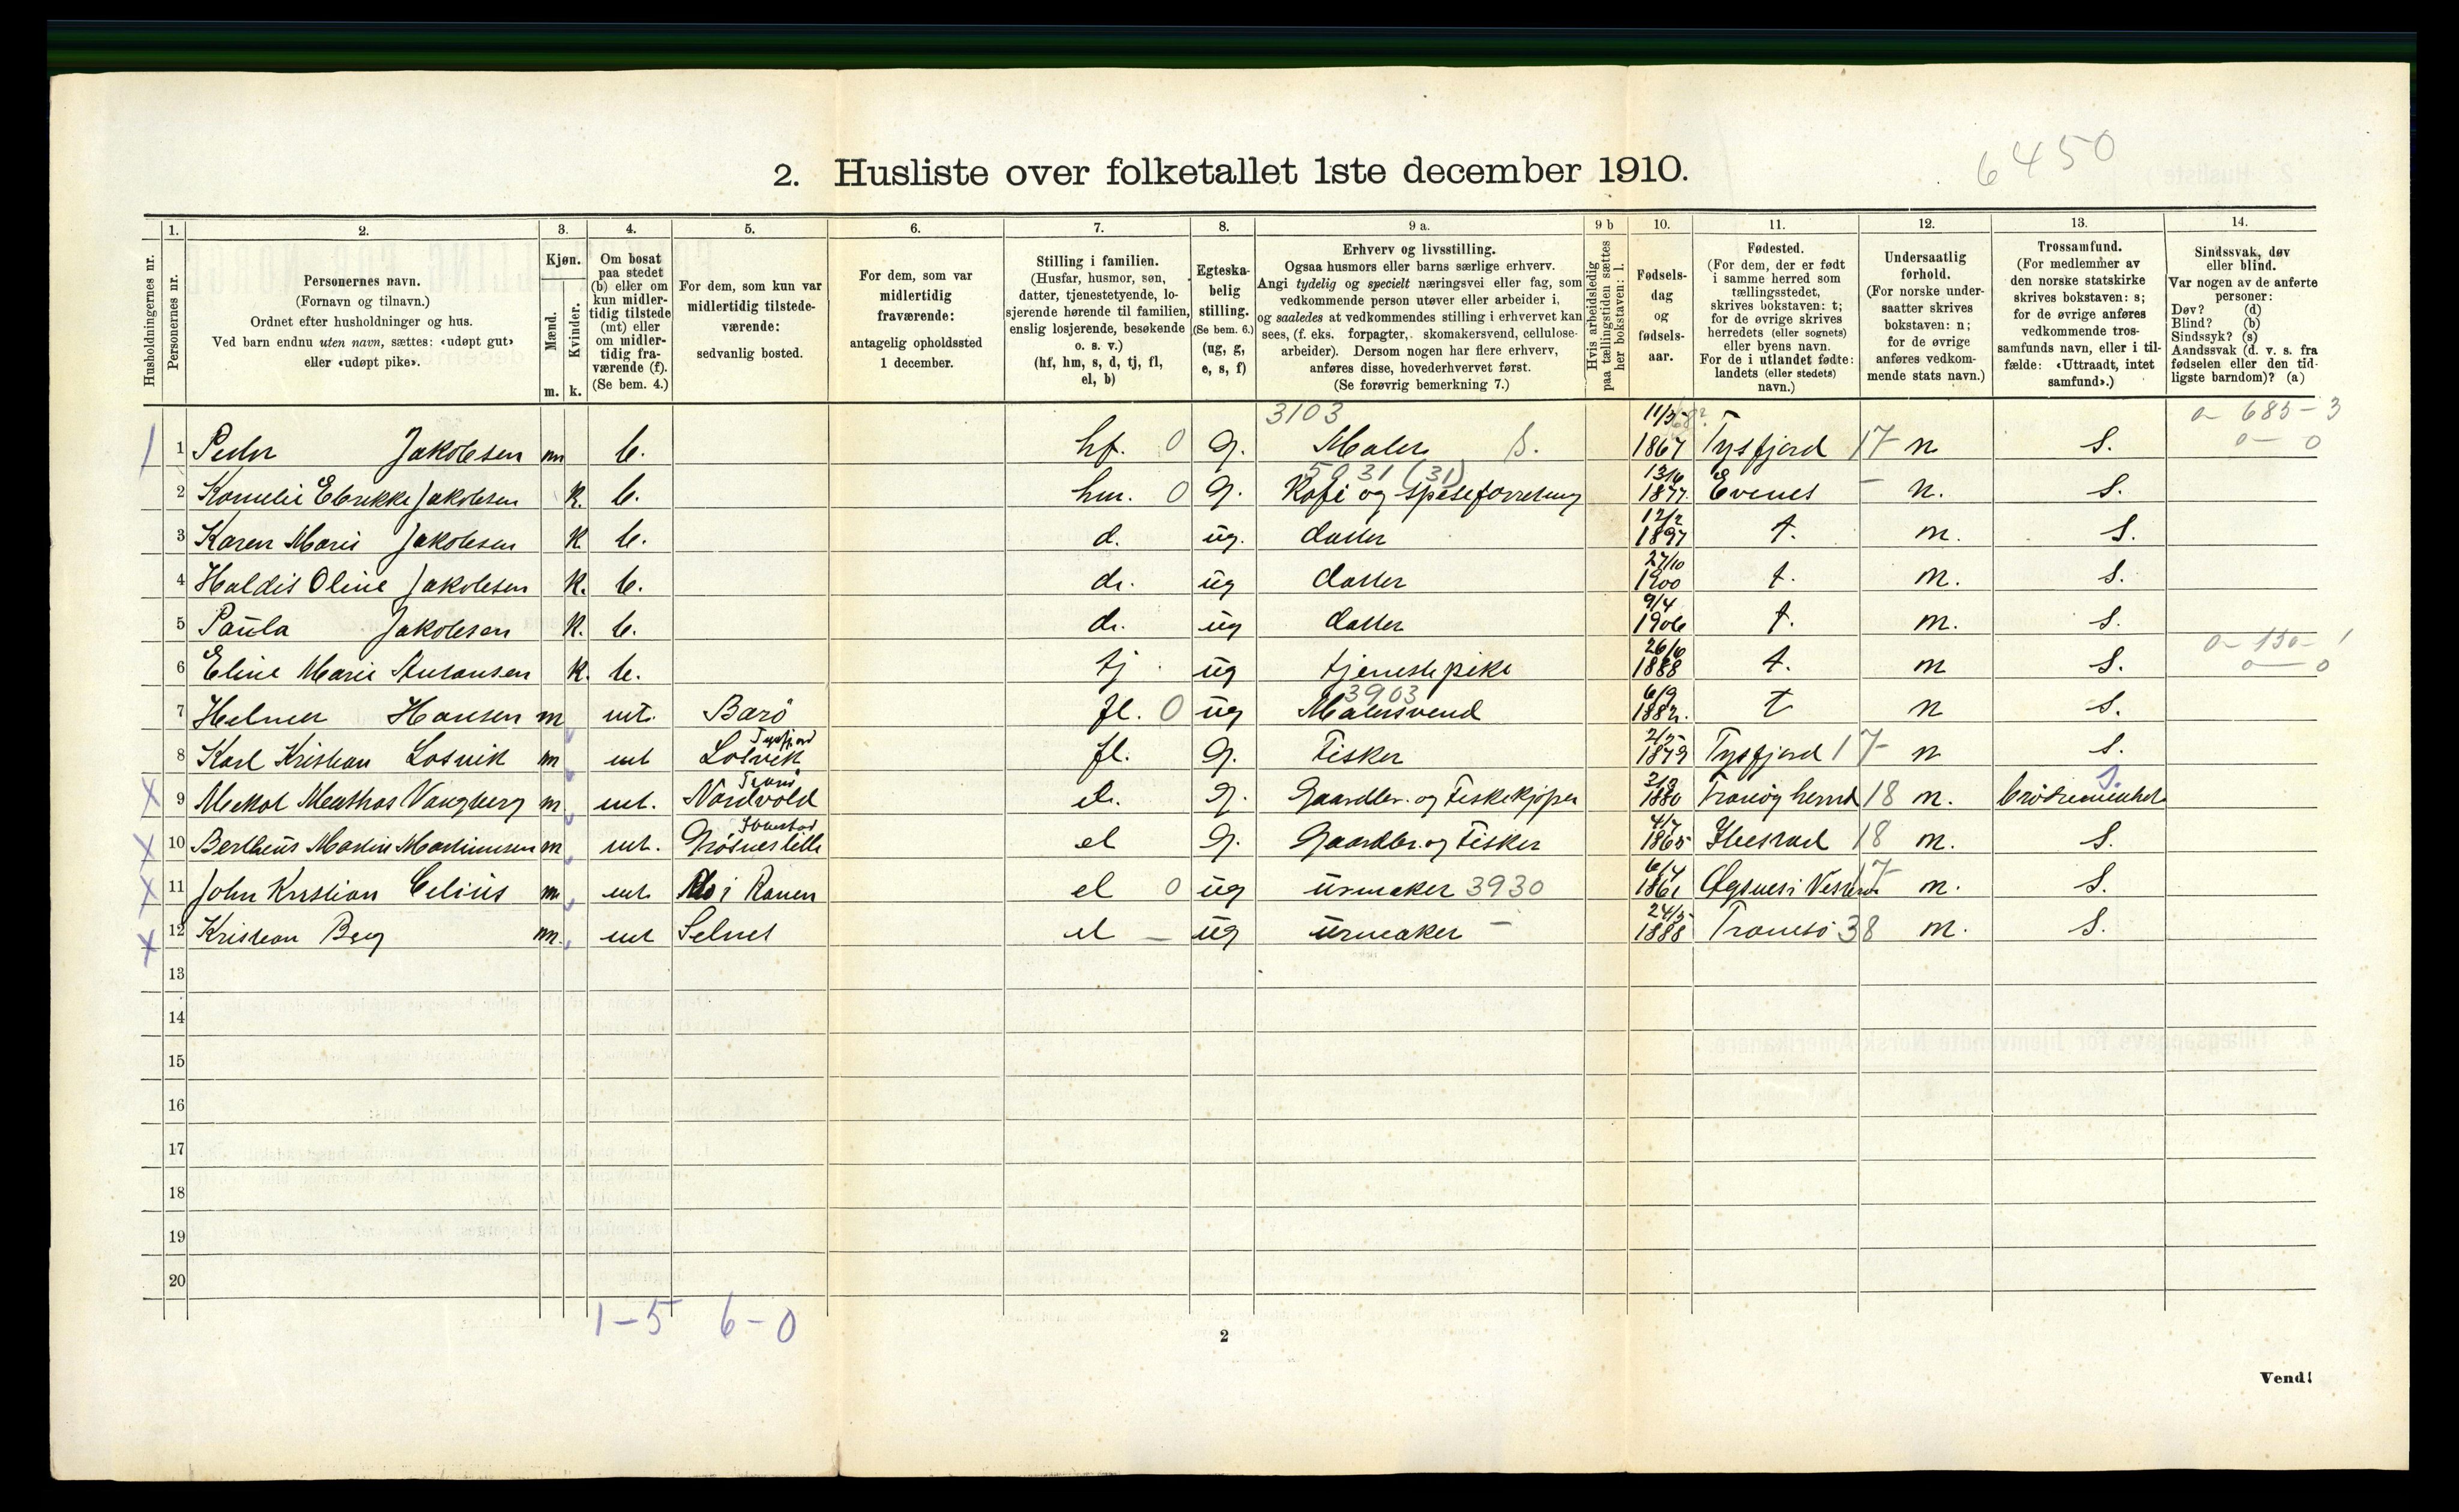 6450
2. Husliste over folketallet 1ste december 1910.
Husholdningernes nr.
1.
Personernes nr.
2.
Personernes navn.
(Fornavn og tilnavn.)
Ordnet efter husholdninger og hus.
Ved barn endnu uten navn, sættes: «udøpt gut»
eller «udøpt pike».
3.
Kjøn.
Mænd.
Kvinder.
m. k.
4.
Om bosat
paa stedet
(b) eller om
kun midler-
tidig tilstede
(mt) eller
om midler-
tidig fra-
værende (f).
(Se bem. 4.)
5.
For dem, som kun var
midlertidig tilstede-
værende:
sedvanlig bosted.
6.
For dem, som var
midlertidig
fraværende:
antagelig opholdssted
1 december.
7.
Stilling i familien.
(Husfar, husmor, søn,
datter, tjenestetyende, lo-
sjerende hørende til familien,
enslig losjerende, besøkende
o. s. v.)
(hf, hm, s, d, tj, fl,
el, b)
8.
Egteska-
belig
stilling.
(Se bem. 6.)
(ug, g,
e, s, f)
9 a.
Erhverv og livsstilling.
Ogsaa husmors eller barns særlige erhverv.
Angi tydelig og specielt næringsvei eller fag, som
vedkommende person utøver eller arbeider i,
og saaledes at vedkommendes stilling i erhvervet kan
sees, (f. eks. forpagter, skomakersvend, cellulose-
arbeider). Dersom nogen har flere erhverv,
anføres disse, hovederhvervet først.
(Se forøvrig bemerkning 7.)
9 b
Hvis arbeidsledig
paa tællingstiden sættes
her bokstaven: l.
10.
Fødsels-
dag
og
fødsels-
aar.
11.
Fødested.
(For dem, der er født
i samme herred som
tællingsstedet,
skrives bokstaven: t;
for de øvrige skrives
herredets (eller sognets)
eller byens navn.
For de i utlandet fødte:
landets (eller stedets)
navn.)
12.
Undersaatlig
forhold.
(For norske under-
saatter skrives
bokstaven: n;
for de øvrige
anføres vedkom-
mende stats navn.)
13.
Trossamfund.
(For medlemmer av
den norske statskirke
skrives bokstaven: s;
for de øvrige anføres
vedkommende tros-
samfunds navn, eller i til-
fælde: «Uttraadt, intet
samfund».)
14.
Sindssvak, døv
eller blind.
Var nogen av de anførte
personer:
Døv? (d)
Blind? (b)
Sindssyk? (s)
Aandssvak (d. v. s. fra
fødselen eller den tid-
ligste barndom)? (a)
3103 11/5 0-685-3
1 Peder Jakobsen m b. hf. 0 g. Maler 1867 Tysfjord 17 n s. 0-0
5031 (31) 13/6
2 Kornelie Jakobsen k. b. hm. 0 g. Kafe og spiseforretning 1877. Evenes - n. s.
12/2
3 Karen Marie Jakobsen k b. d. ug. datter 1897 t. n. s.
27/10
4 Haldis Oline Jakobsen k. b. d. ug datter 1900 t. n. s.
9/4
5 Paula Jakobsen k. b. d. ug datter 1906 t. n. s.
26/6 0-130-1
6 Eline Marie k. b. tj ug tjenestepike 1888 t. n s. 0-0
3903 6/9
7 Helmer Hansen m mt. Barö fl. 0 ug Malersvend 1882. t n s.
Tysfjord 2/5
8 Karl Kristian Losvik m mt Losvik fl. g. Fisker 1879 Tysfjord 17 n s.
Tranö 3/9 s.
9 Vangberg m mt. Nordvold el. g. Gaardbr. og Fiskekjøper 1880 Tranøy herred 18 n. brödremenhet
Ibestad 4/7
10 Bertheus Martin Martinussen m mt. Grøsnes lille el g. Gaardbr. og Fisker 1865 Ibestad 18 n. s.
6/4
11 John Kristian Celius m mt Mo i Ranen el 0 ug urmaker 3930 1861 Øgsnes i Vesteraalen 17 n. s.
24/5
12 Kristian Berg m. mt Selnes el - ug urmaker - 1888 Tromsö 38 n. s.
13
14
15
16
17
18
19
20
1-5 6-0
2
Vend!